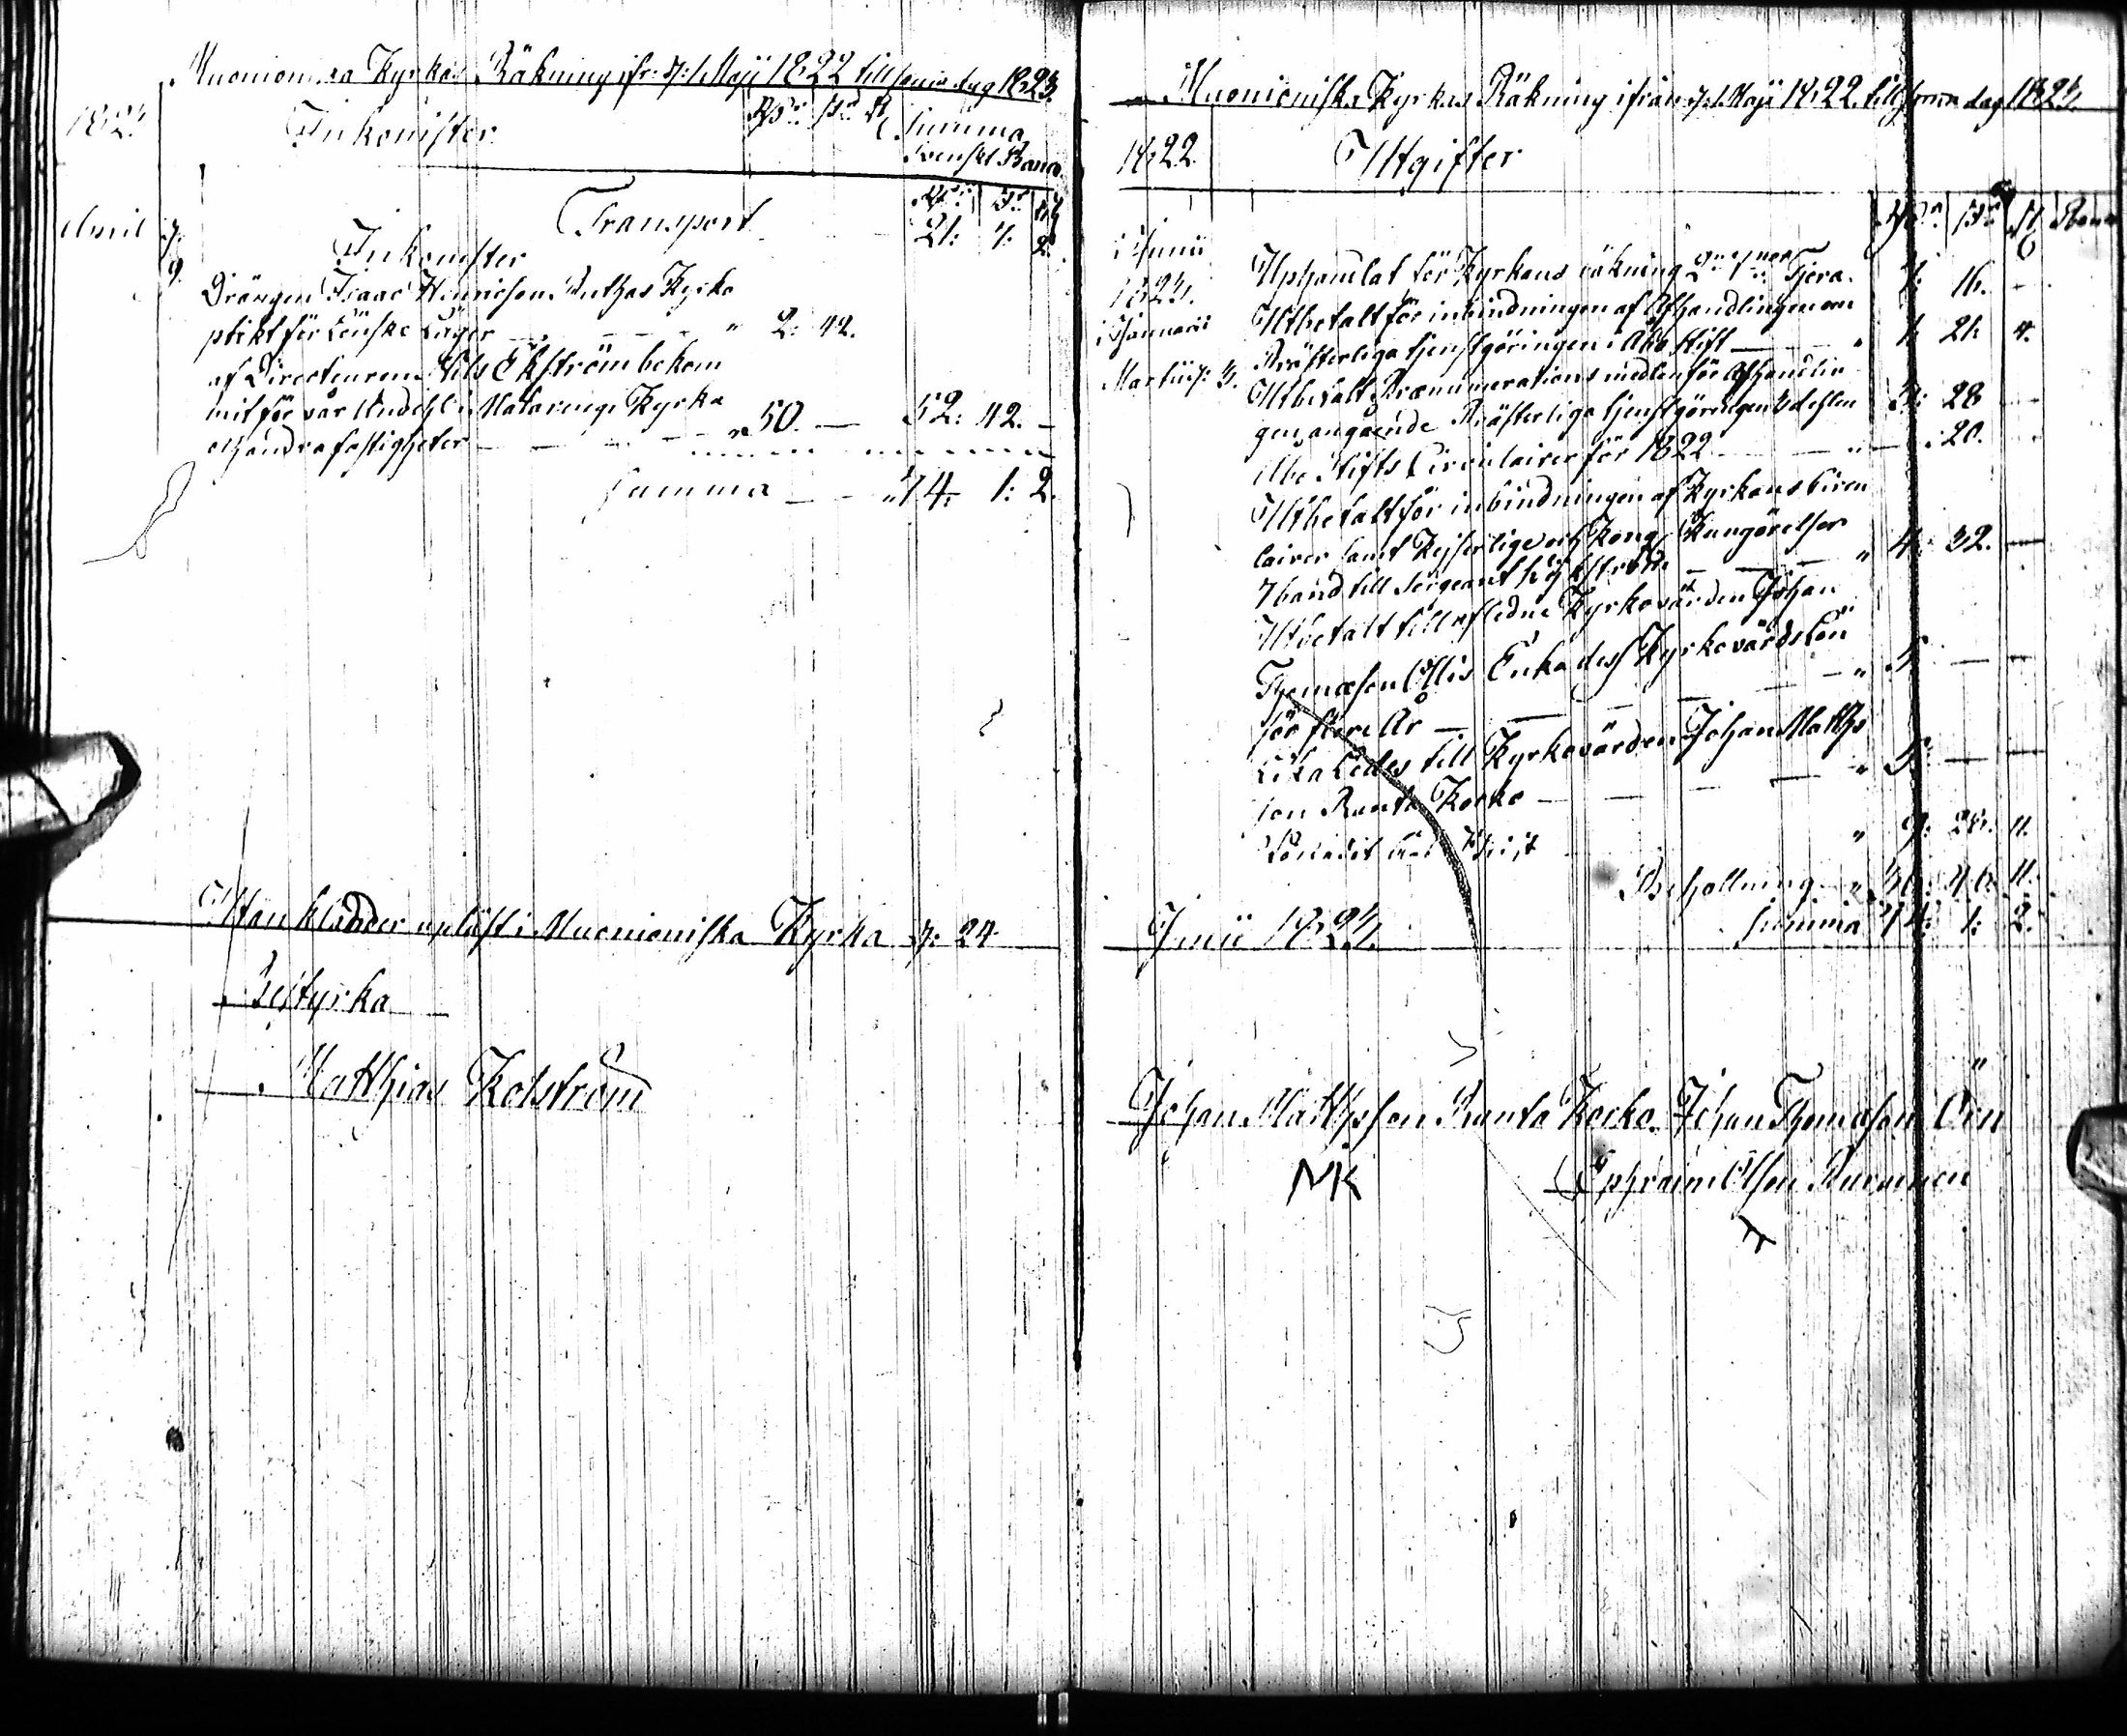 Muonioniska Kyrkas Räkning ifr: d: 1 Maji 1822 till samma dag 1823.
1823
Inkomster
Rdr sk r
Summa
Svenskt Banco
Rdr sk r
Transport 21: 7: 2.
April d: 9.
Inkomster
Drängen Isaac Henricson Kyrko
plikt för Lönske Läger — " 2: 42.
af Directeuren Nils Ekström bekom
mit för vår Andehl i Matarengi Kyrka
och andra fastigheter — " 50. — 52: 42. —
Summa — " 74. 1: 2.
Utan klander upläst i Muonioniska Kyrka d: 24
Bestyrka
Matthias Kolström
Muonioniska Kyrkas Räkning ifrån d. 1. Maji 1822. till samma dag 1823.
1822
Utgifter
Rdr sk r Banco
Junii
Uphandlat för Kyrkans räkning Tjera. 1: 16. —
1823.
Januarii
Utbetalt för inbindningen af Afhandlingen om
Prästerliga tjenstgöringen i Åbo Stift — " 1: 21: 4.
Martii d: 3.
Utbetalt Prænumerations medlen för Afhandlin
gen angående Prästerliga tjenstgöringen 3 dehlen 3: 28 —
Åbo Stifts Circulairer för 1822 — " — 20. —
Utbetalt för inbindningen af Kyrkans Circu
lairer samt Kejserlige och Kongl Kungörelser
7 band till Sergeant — " 4: 32. —
Utbetalt till afledne Kyrkovärden Johan
Thomæson Ollis Enka dess Kyrkovärds Lön
för flere År — " 5 — —
Lika ledes till Kyrkovärden Johan Matths
son Ranta Kocko — " 5 — —
" 9: 28. 11.
Behollning " 46. 11.
Summa 74: 1: 2.
Junii 1823.
Johan Mathsson Ranta Kocko. Johan Thomasson Örn
NK
Ephraim Olsson